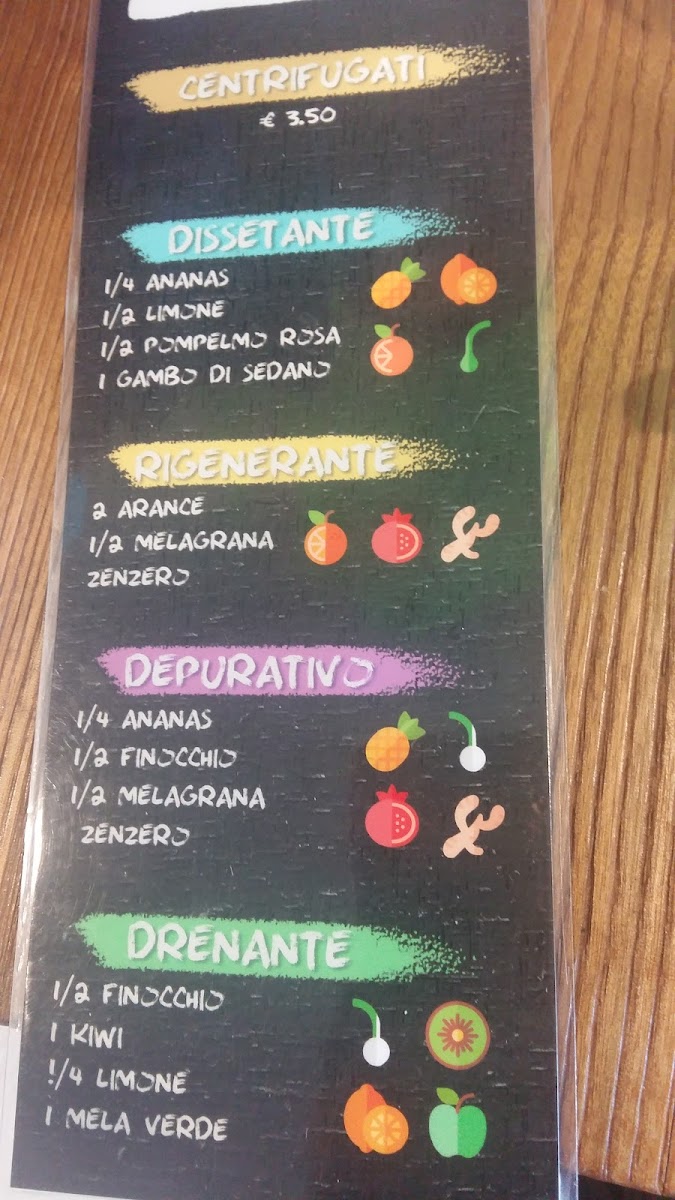 CENTRIFUGATI
€ 3.50
DISSETANTE
1/4 ANANAS
1/2 LIMONE
1/2 POMPELMO ROSA
1 GAMBO DI SEDANO
RIGENERANTE
2 ARANCE
1/2 MELAGRANA
ZENZERO
DEPURATIVO
1/4 ANANAS
1/2 FINOCCHIO
1/2 MELAGRANA
ZENZERO
DRENANTE
1/2 FINOCCHIO
1 KIWI
1/4 LIMONE
1 MELA VERDE